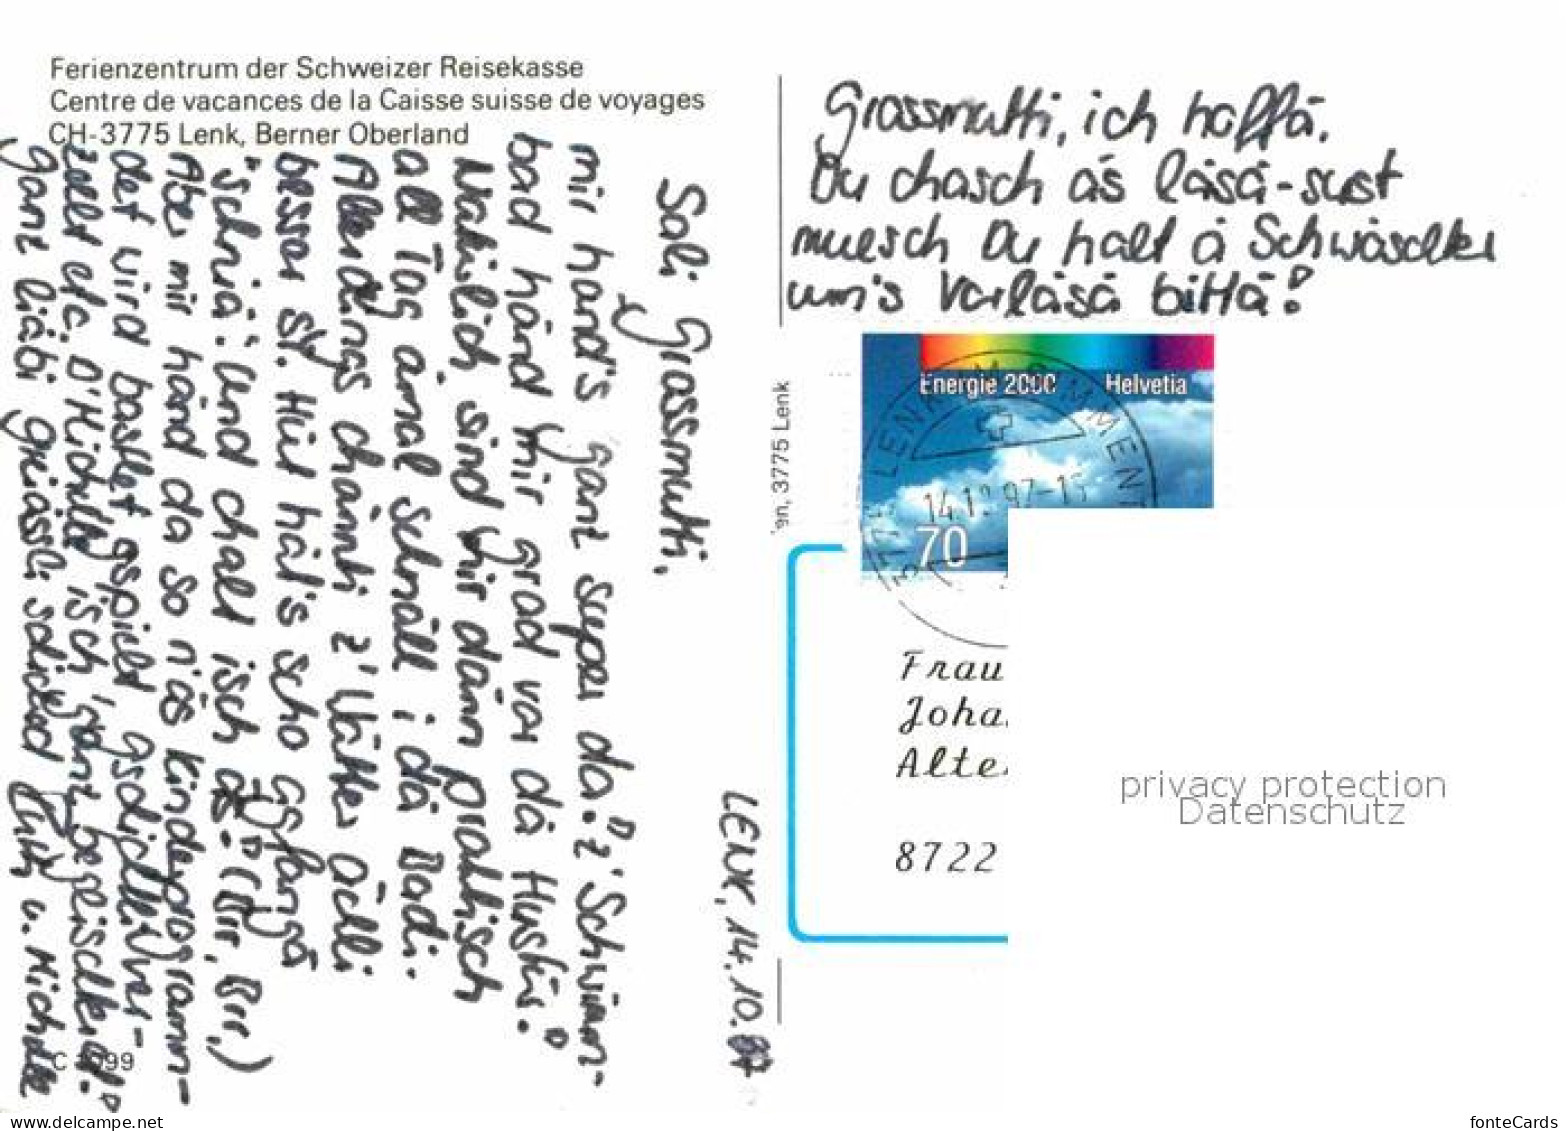 Ferienzentrum der Schweizer Reisekasse
Centre de vacances de la Caisse suisse de voyages
CH-3775 Lenk, Berner Oberland
LENK, 14.10.97
Sali Grossmutti,
mir händ's ganz super da. "z' Schwimm-
bad händ mir grad vor dä Hustür."
Natürlich sind mir dänn praktisch
all Tag ämal schnäll i dä Badi.
Allerdings chännti z' Wätter ächli
besser sy. Hüt hät's scho agfangä
"schniä". Und chalt isch äs. (Brr, Brr,)
Aber mir händ da so n'äs Kinderprogramm-
det wird bastlet, gspielt, gschichtli ver-
zellt etc. D'Michelle isch ganz begeischteret.
ganz liäbi grüässli schicked u. Michelle
C 1099
Grossmutti, ich hoffä,
Du chasch äs läsä-sust
muesch Du halt ä Schwöschter
um's Vorläsä bittä!
en, 3775 Lenk
Energie 2000 Helvetia
70
14.10.97-15
3775 LENK IM SIMMENT
Frau
Joha
Alte
8722
privacy protection
Datenschutz
www.delcampe.net
fonteCards